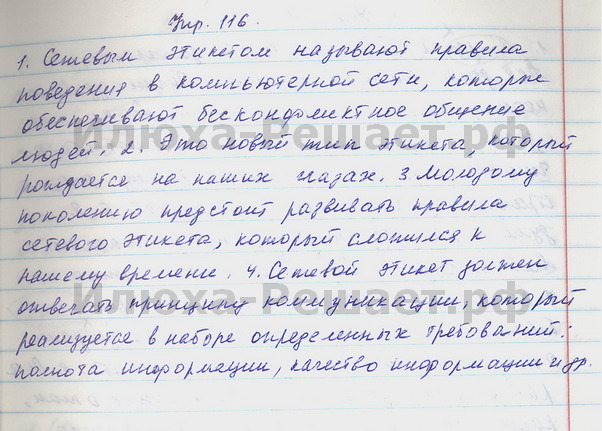 Упр. 116.
1. Сетевым этикетом называют правила
поведения в компьютерной сети, которые
обеспечивают бесконфликтное общение
людей. 2. Это новый тип этикета, который
рождается на наших глазах. 3 Молодому
поколению предстоит развивать правила
сетевого этикета, который сложился к
нашему времени. 4. Сетевой этикет должен
отвечать принципу коммуникации, который
реализуется в наборе определенных требований:
полнота информации, качество информации и др.
Илюха-Решает.рф
Илюха-Решает.рф